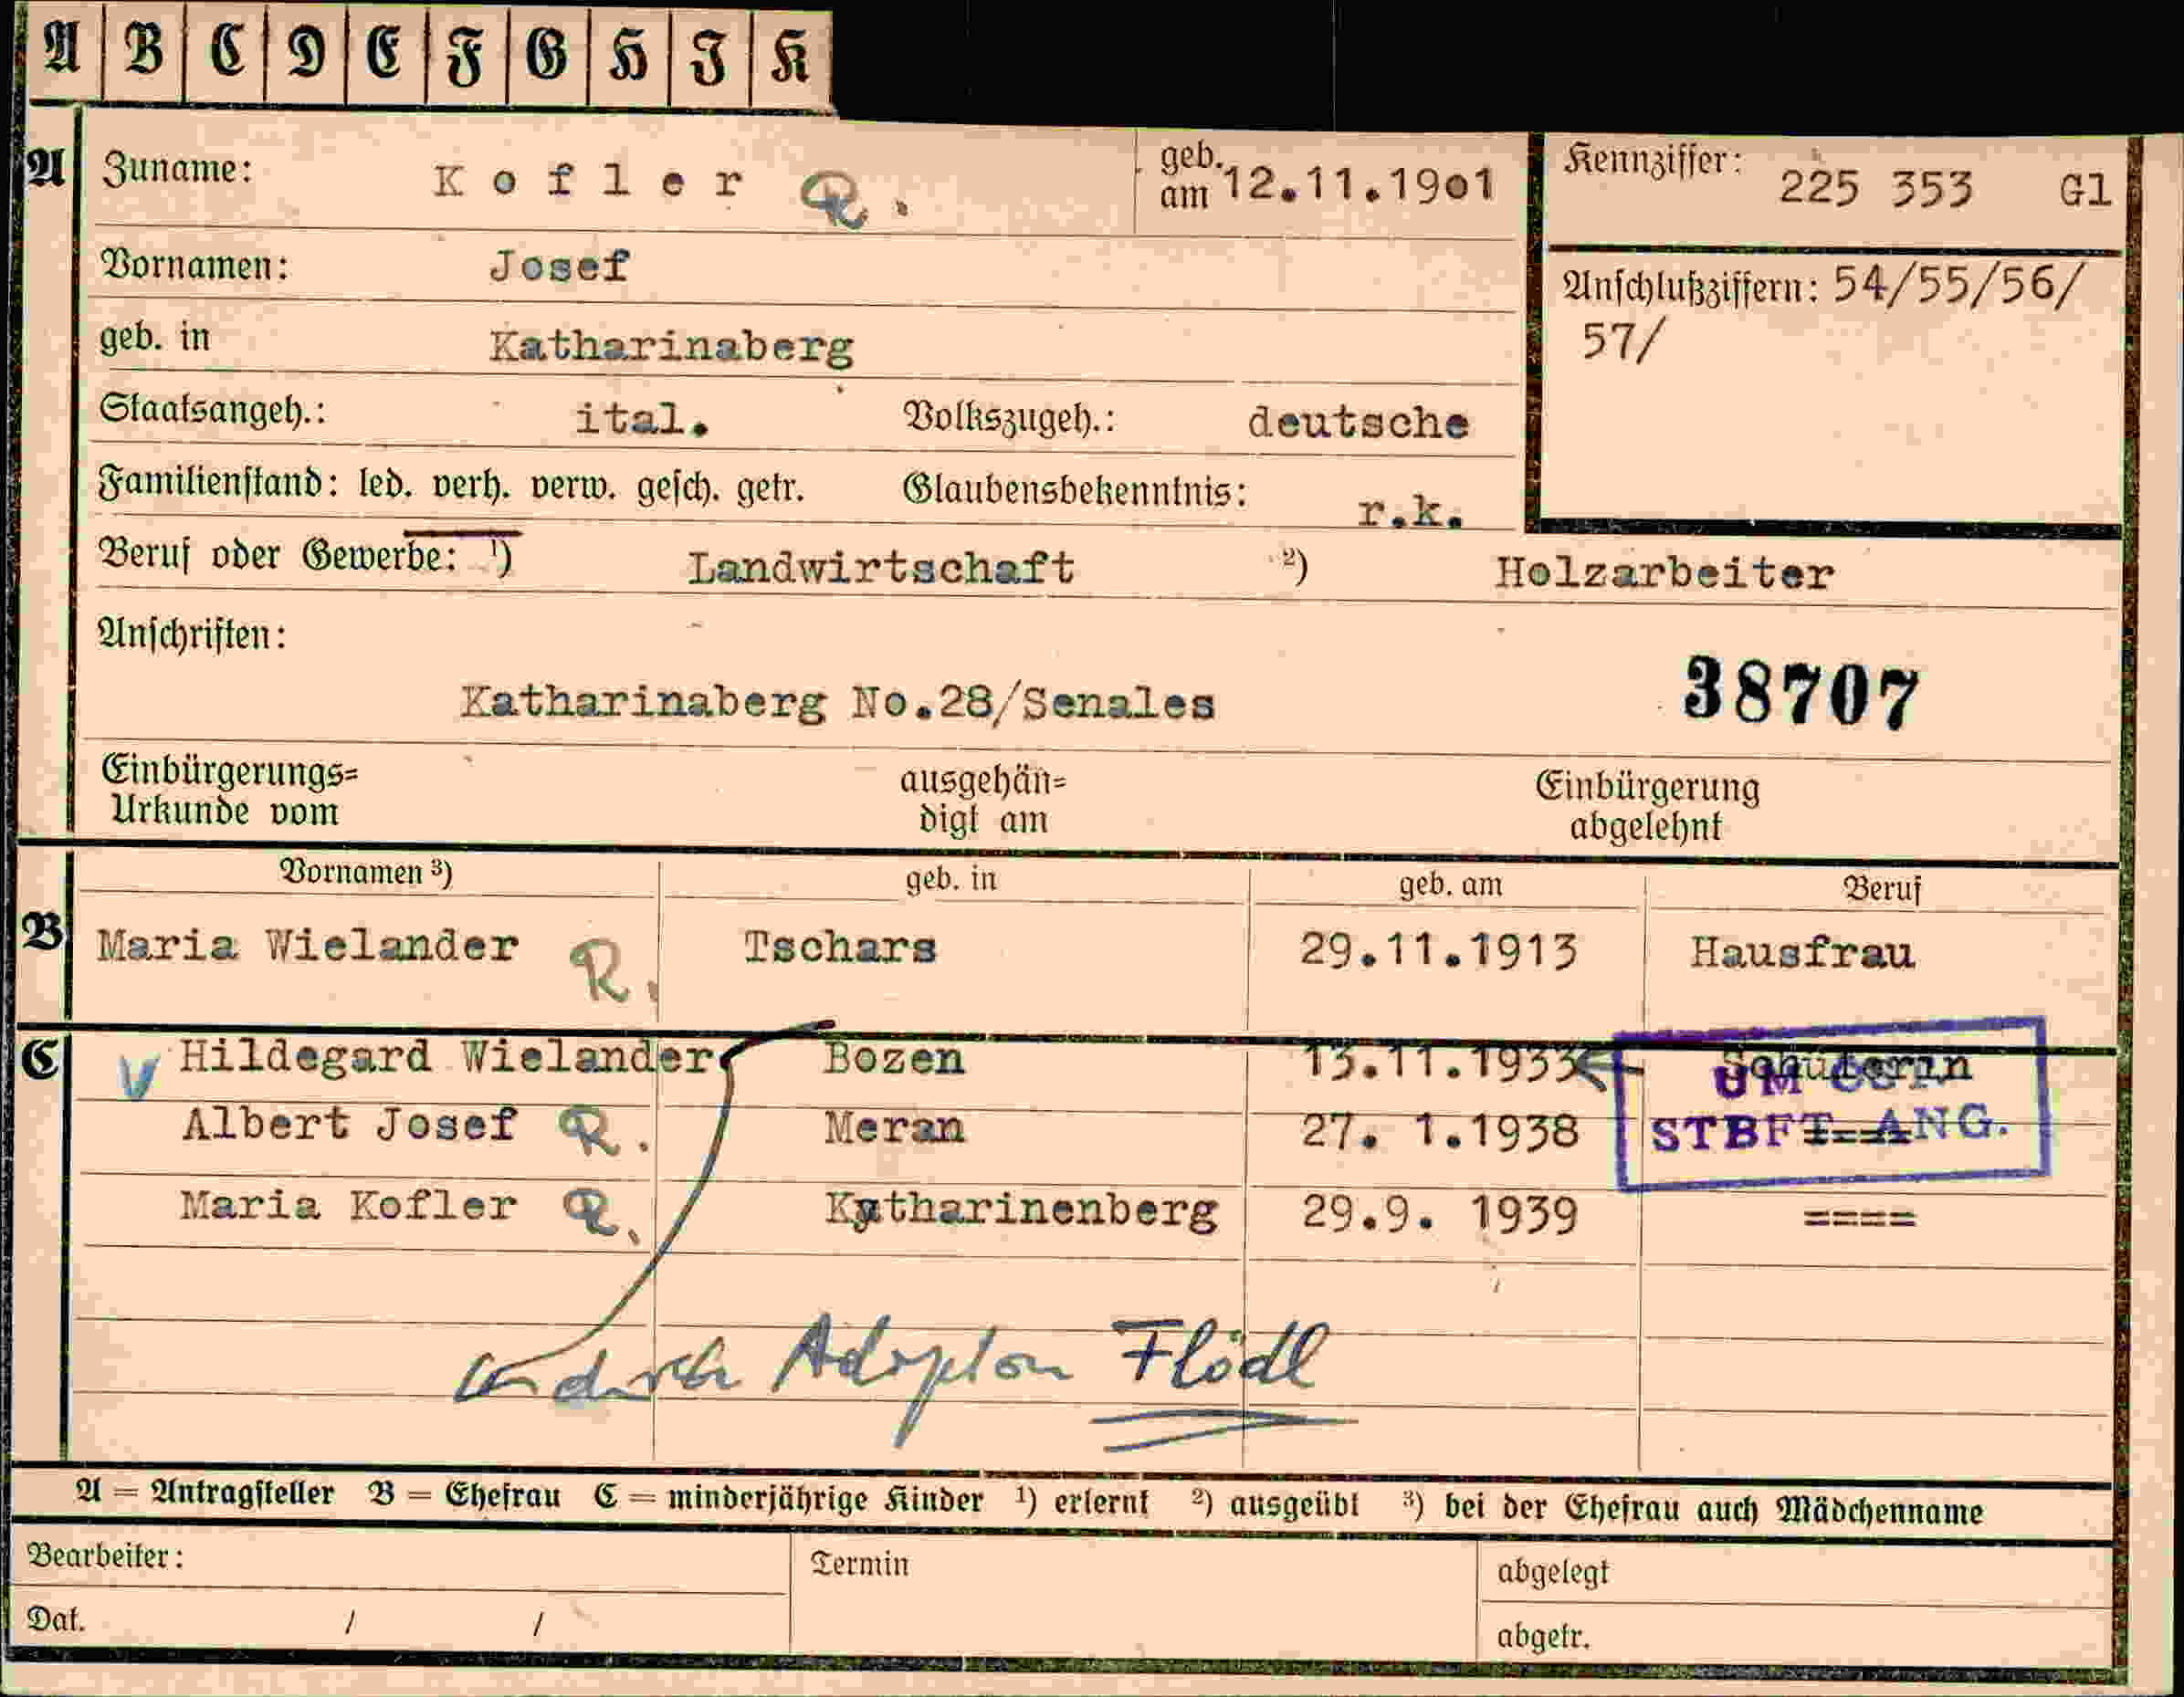 A B C D E F G H J K
A Zuname: Kofler R. geb. am 12.11.1901 Kennziffer: 225 353 Gl
Vornamen: Josef Anschlußziffern: 54/55/56/
57/
geb. in Katharinaberg
Staatsangeh.: ital. Volkszugeh.: deutsche
Familienstand: led. verh. verw. gesch. getr. Glaubensbekenntnis: r.k.
Beruf oder Gewerbe: ¹) Landwirtschaft ²) Holzarbeiter
Anschriften:
38707
Katharinaberg No.28/Senales
Einbürgerungs= ausgehän= Einbürgerung
Urkunde vom digt am abgelehnt
Vornamen ³) geb. in geb. am Beruf
B Maria Wielander R. Tschars 29.11.1913 Hausfrau
C V Hildegard Wielander Bozen 13.11.1933 Schülerin
UM
Albert Josef R. Meran 27. 1.1938
STBFT. ANG.
Maria Kofler R. Katharinenberg 29.9. 1939 ====
durch Adoption Flödl
A = Antragsteller B = Ehefrau C = minderjährige Kinder ¹) erlernt ²) ausgeübt ³) bei der Ehefrau auch Mädchenname
Bearbeiter: Termin abgelegt
Dat. / / abgetr.